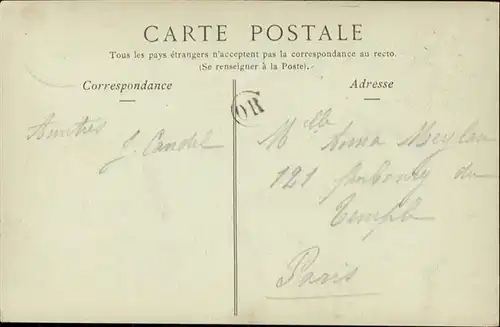 CARTE POSTALE
Tous les pays étrangers n'acceptent pas la correspondance au recto.
(Se renseigner à la Poste).-
Correspondance
Adresse
OR
Amitiés
J. Candel
Melle Anna Meylan
121 faubourg du
Temple
Paris